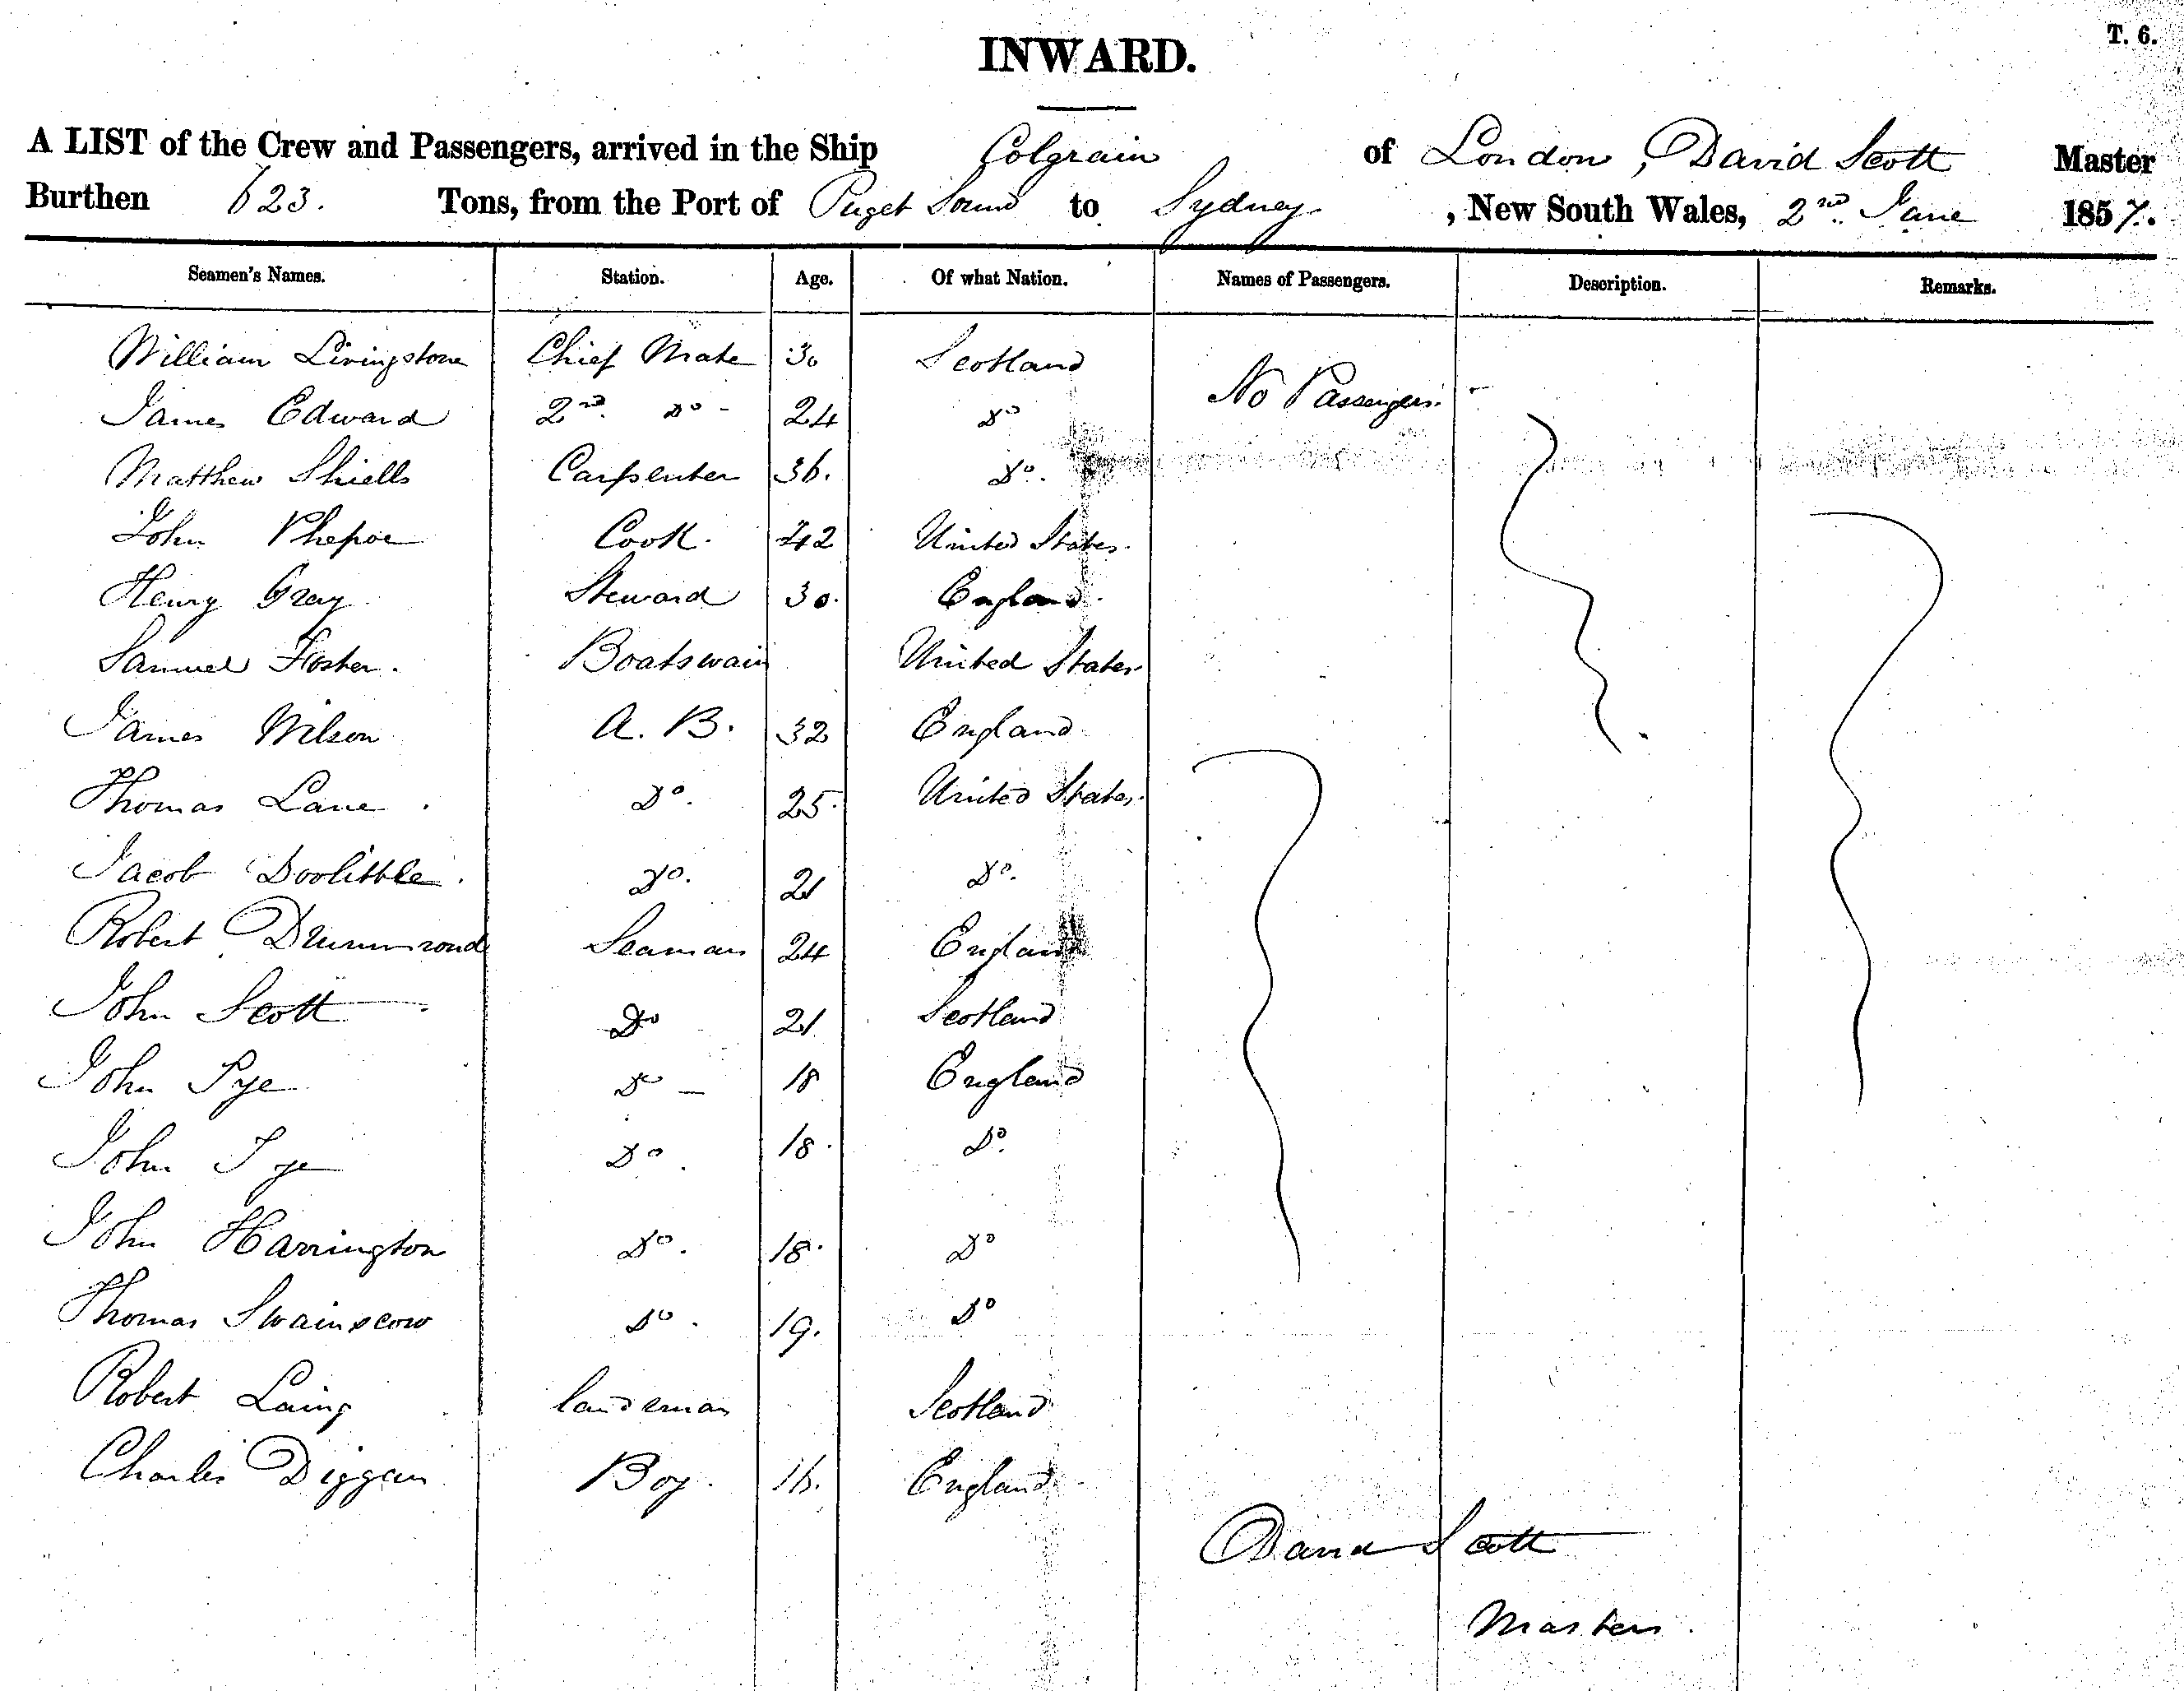 T. 6.
INWARD.
A LIST of the Crew and Passengers, arrived in the Ship Colgrain of London, David Scott Master
Burthen 623. Tons, from the Port of Puget Sound to Sydney, New South Wales, 2nd June 1857.
Seamen's Names. Station. Age. Of what Nation. Names of Passengers. Description. Remarks.
William Livingstone Chief Mate 30 Scotland
No Passengers.
James Edward 2nd. Do - 24 Do
Matthew Shiells Carpenter 36. Do.
John Phepoe Cook. 42 United States.
Henry Gray. Steward 30. England.
Samuel Foster. Boatswain United States.
James Wilson A. B. 32 England.
Thomas Lane. Do. 25. United States.
Jacob Doolittle. Do. 21 Do.
Robert Drummond Seaman 24 England
John Scott Do 21 Scotland
John Pye Do - 18 England
John Do. 18. Do.
John Harrington Do. 18. Do
Thomas Swainscow Do. 19. Do
Robert Laing landsman Scotland
Charles Diggan Boy. 16. England.
David Scott
Master.